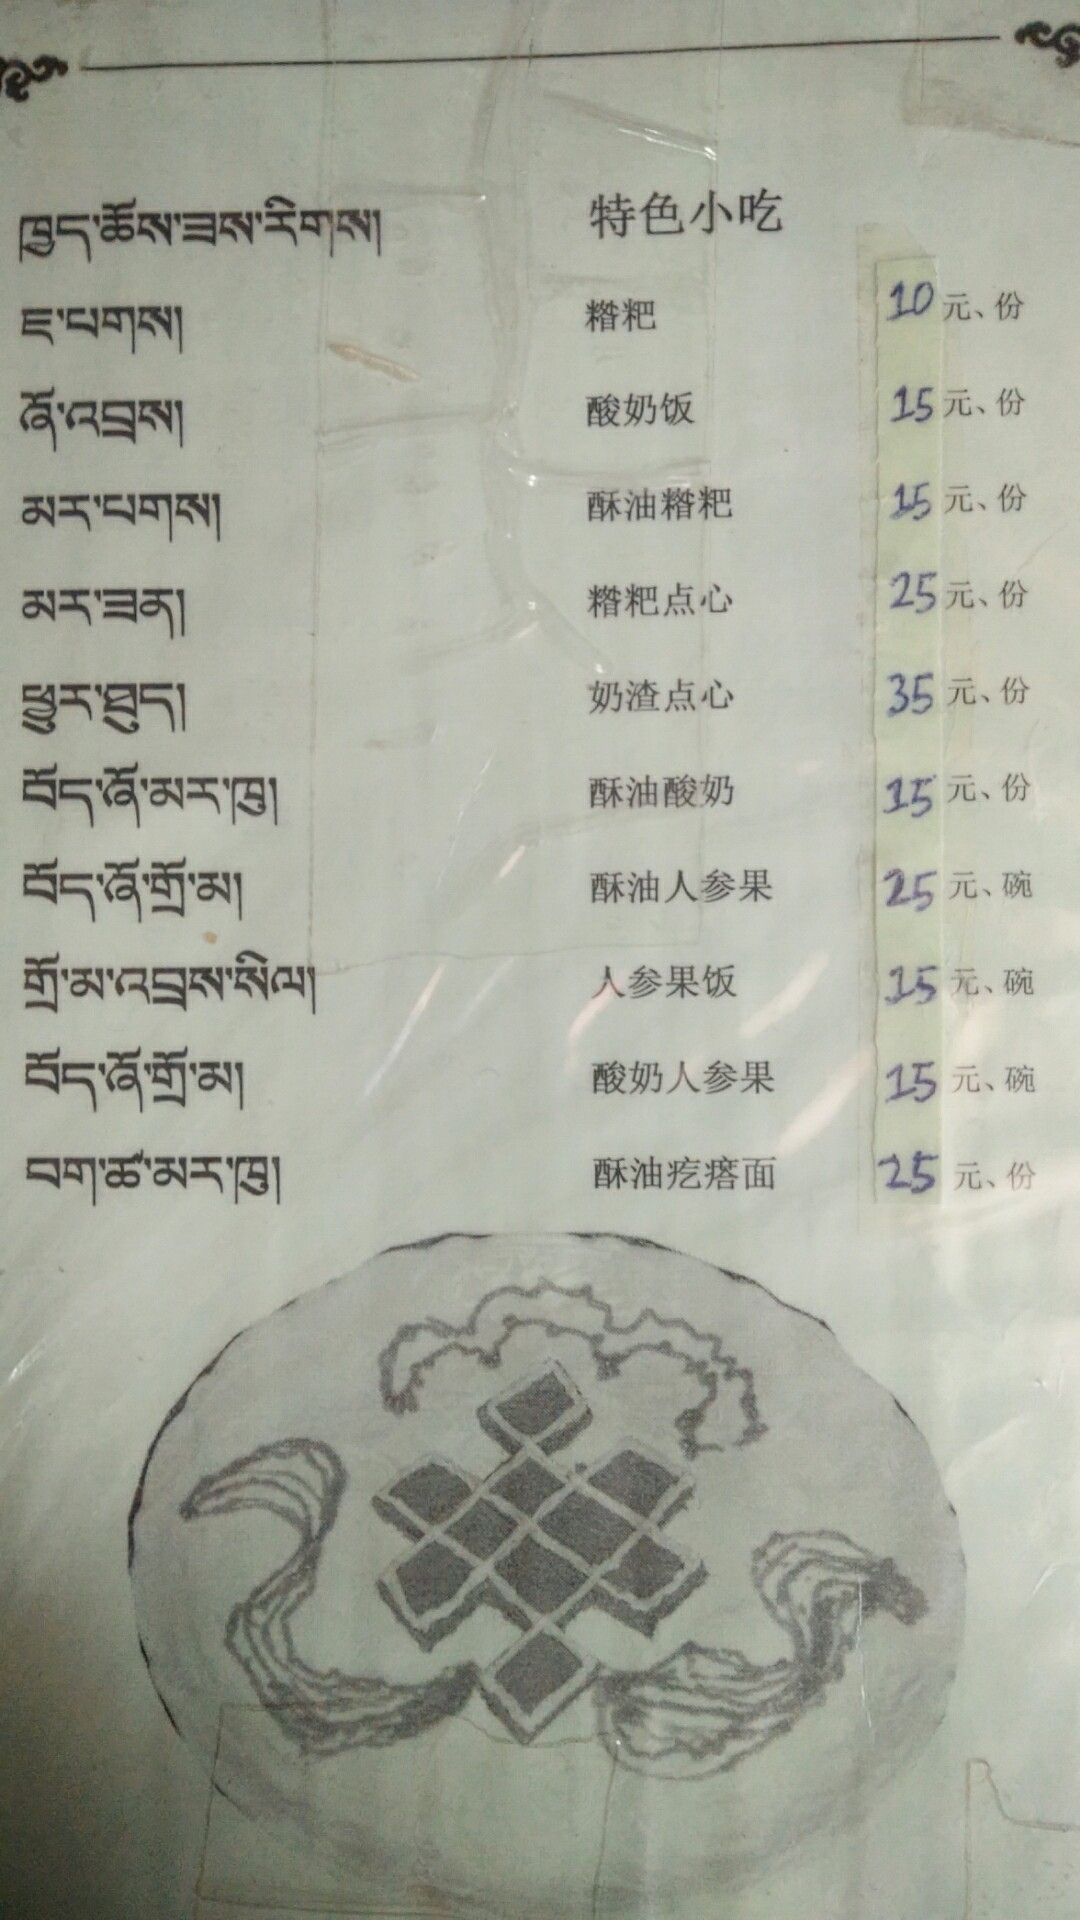 ཁྱད་ཆོས་ཟས་རིགས། 特色小吃
ཇ་པགས། 糌粑 10元、份
ཞོ་འབྲས། 酸奶饭 15元、份
མར་པགས། 酥油糌粑 15元、份
མར་ཟན། 糌粑点心 25元、份
ཕྱུར་ཐུད། 奶渣点心 35元、份
བོད་ཞོ་མར་ཁུ། 酥油酸奶 15元、份
བོད་ཞོ་གྲོ་མ། 酥油人参果 25元、碗
གྲོ་མ་འབྲས་སིལ། 人参果饭 15元、碗
བོད་ཞོ་གྲོ་མ། 酸奶人参果 15元、碗
བག་ཚ་མར་ཁུ། 酥油疙瘩面 25元、份